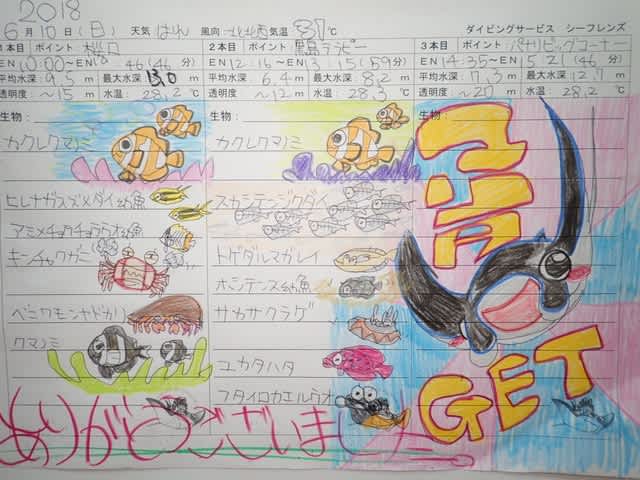 2018
6月10日(日) 天気 はれ 風向 北北西 気温 31℃ ダイビングサービス シーフレンズ
1本目 ポイント 桜口
2本目 ポイント 黒島テラピー
3本目 ポイント パナリビッグコーナー
EN 46(46分)
EN 12:16〜 13:15(59分)
EN 14:35〜EX 15:21(46分
平均水深 9.5m 最大水深 13.0m
平均水深 6.4m 最大水深 8.2m
平均水深 7.3m 最大水深 12.7m
透明度 〜15m 水温: 28.2℃
透明度 〜12m 水温: 28.3℃
透明度 〜20m 水温: 28.2℃
生物:
カクレクマノミ
ヒレナガスズメダイ幼魚
アミメチョウチョウウオ幼魚
キンチャクガニ
ベニワモンヤドカリ
クマノミ
生物:
カクレクマノミ
スカシテンジクダイ
トゲダルマガレイ
ホシテンス幼魚
サカサクラゲ
ユカタハタ
フタイロカエルウオ
生物:
マンタ
GET
ありがとうございました